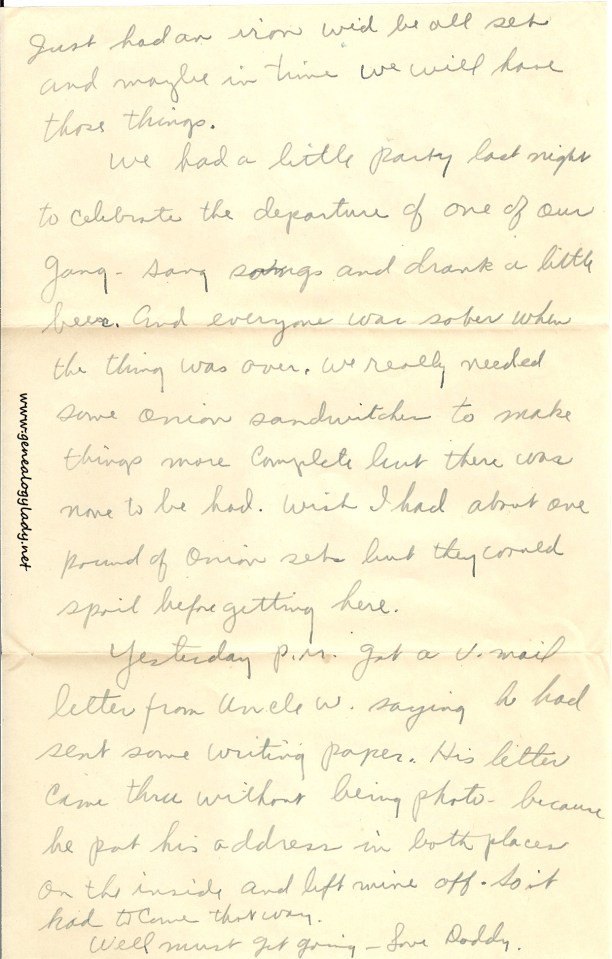 Just had an iron we'd be all set
and maybe in time we will have
those things.
We had a little party last night
to celebrate the departure of one of our
gang - sang songs and drank a little
beer. And everyone was sober when
the thing was over. We really needed
some onion sandwitches to make
things more complete but there was
none to be had. Wish I had about one
pound of onion sets but they would
spoil before getting here.
Yesterday p.m. got a V-mail
letter from Uncle W. saying he had
sent some writing paper. His letter
came thru without being photo- because
he put his address in both places
on the inside and left mine off. So it
had to come that way.
Well must get going - Love Daddy.
www.genealogylady.net